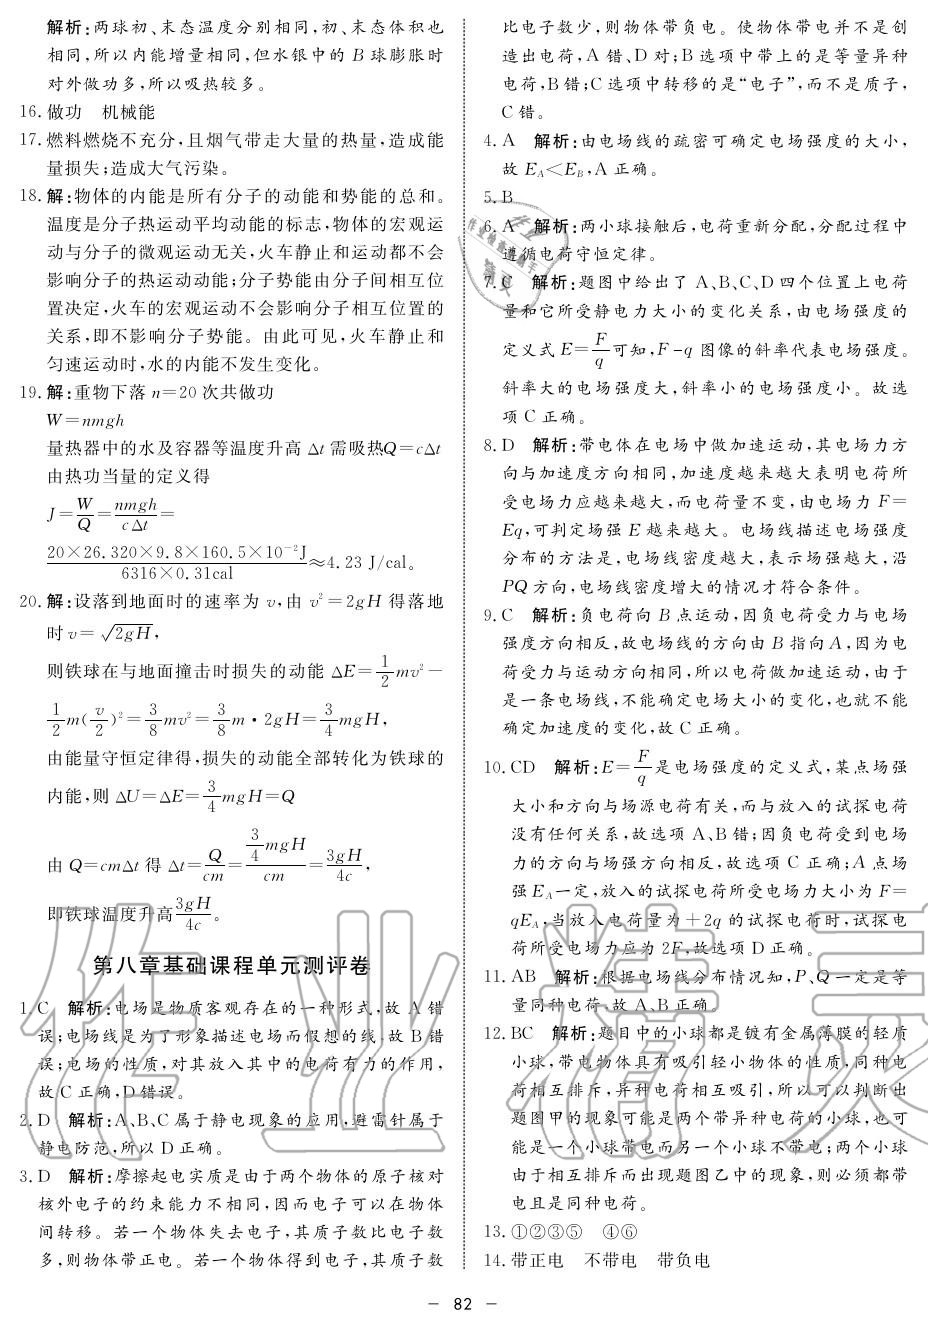 解析:两球初、末态温度分别相同,初、末态体积也
相同,所以内能增量相同,但水银中的 B 球膨胀时
对外做功多,所以吸热较多。
16. 做功　机械能
17. 燃料燃烧不充分,且烟气带走大量的热量,造成能
量损失;造成大气污染。
18. 解:物体的内能是所有分子的动能和势能的总和。
温度是分子热运动平均动能的标志,物体的宏观运
动与分子的微观运动无关,火车静止和运动都不会
影响分子的热运动动能;分子势能由分子间相互位
置决定,火车的宏观运动不会影响分子相互位置的
关系,即不影响分子势能。由此可见,火车静止和
匀速运动时,水的内能不发生变化。
19. 解:重物下落 n=20 次共做功
W=nmgh
量热器中的水及容器等温度升高 Δt 需吸热Q=cΔt
由热功当量的定义得
J=W/Q=nmgh/cΔt=
20×26.320×9.8×160.5×10⁻²J/6316×0.31cal≈4.23 J/cal。
20. 解:设落到地面时的速率为 v,由 v²=2gH 得落地
时 v=√2gH,
则铁球在与地面撞击时损失的动能 ΔE=1/2mv²-
1/2m(v/2)²=3/8mv²=3/8m·2gH=3/4mgH,
由能量守恒定律得,损失的动能全部转化为铁球的
内能,则 ΔU=ΔE=3/4mgH=Q
由 Q=cmΔt 得 Δt=Q/cm=3/4mgH/cm=3gH/4c,
即铁球温度升高3gH/4c。
第八章基础课程单元测评卷
1. C　解析:电场是物质客观存在的一种形式,故 A 错
误;电场线是为了形象描述电场而假想的线,故 B 错
误;电场的性质,对其放入其中的电荷有力的作用,
故 C 正确,D 错误。
2. D　解析:A、B、C 属于静电现象的应用,避雷针属于
静电防范,所以 D 正确。
3. D　解析:摩擦起电实质是由于两个物体的原子核对
核外电子的约束能力不相同,因而电子可以在物体
间转移。若一个物体失去电子,其质子数比电子数
多,则物体带正电。若一个物体得到电子,其质子数
比电子数少,则物体带负电。使物体带电并不是创
造出电荷,A 错、D 对;B 选项中带上的是等量异种
电荷,B 错;C 选项中转移的是“电子”,而不是质子,
C 错。
4. A　解析:由电场线的疏密可确定电场强度的大小,
故 E_A<E_B,A 正确。
5. B
6. A　解析:两小球接触后,电荷重新分配,分配过程中
遵循电荷守恒定律。
7. C　解析:题图中给出了 A、B、C、D 四个位置上电荷
量和它所受静电力大小的变化关系,由电场强度的
定义式 E=F/q可知,F-q 图像的斜率代表电场强度。
斜率大的电场强度大,斜率小的电场强度小。故选
项 C 正确。
8. D　解析:带电体在电场中做加速运动,其电场力方
向与加速度方向相同,加速度越来越大表明电荷所
受电场力应越来越大,而电荷量不变,由电场力 F=
Eq,可判定场强 E 越来越大。电场线描述电场强度
分布的方法是,电场线密度越大,表示场强越大,沿
PQ 方向,电场线密度增大的情况才符合条件。
9. C　解析:负电荷向 B 点运动,因负电荷受力与电场
强度方向相反,故电场线的方向由 B 指向 A,因为电
荷受力与运动方向相同,所以电荷做加速运动,由于
是一条电场线,不能确定电场大小的变化,也就不能
确定加速度的变化,故 C 正确。
10. CD　解析:E=F/q是电场强度的定义式,某点场强
大小和方向与场源电荷有关,而与放入的试探电荷
没有任何关系,故选项 A、B 错;因负电荷受到电场
力的方向与场强方向相反,故选项 C 正确;A 点场
强 E_A一定,放入的试探电荷所受电场力大小为 F=
qE_A,当放入电荷量为+2q 的试探电荷时,试探电
荷所受电场力应为 2F,故选项 D 正确。
11. AB　解析:根据电场线分布情况知,P、Q 一定是等
量同种电荷,故 A、B 正确。
12. BC　解析:题目中的小球都是镀有金属薄膜的轻质
小球,带电物体具有吸引轻小物体的性质,同种电
荷相互排斥,异种电荷相互吸引,所以可以判断出
题图甲的现象可能是两个带异种电荷的小球,也可
能是一个小球带电而另一个小球不带电;两个小球
由于相互排斥而出现题图乙中的现象,则必须都带
电且是同种电荷。
13. ①②③⑤　④⑥
14. 带正电　不带电　带负电
－ 82 －